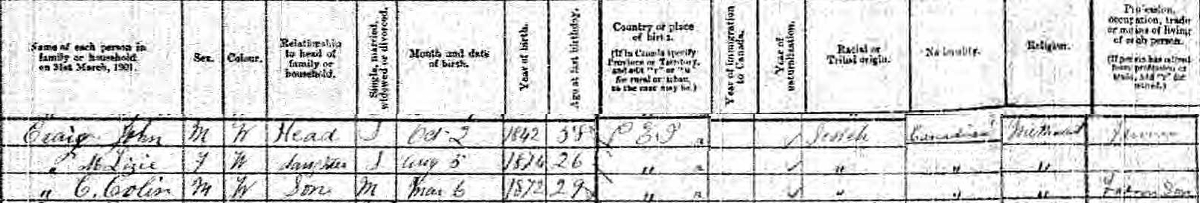 Name of each person in family or household on 31st March, 1901. Sex. Colour. Relationship to head of family or household. Single, married, widowed or divorced. Month and date of birth. Year of birth. Age at last birthday. Country or place of birth. (If in Canada specify Province or Territory, and add "r" or "u" for rural or urban, as the case may be.) Year of immigration to Canada. Year of naturalization. Racial or Tribal origin. Nationality. Religion. Profession, occupation, trade or means of living of each person. (If person has retired from profession or trade, add "r" for retired.)
Craig John M W Head S Oct 2 1842 58 P E I Scotch Canadian Methodist
" Lizie F W daughter S Aug 5 1874 26 " " " "
" C. Colin M W Son M Mar 6 1872 29 " " " " Farmer Son